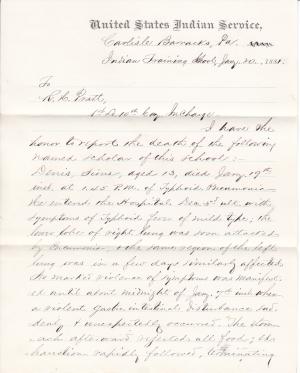 United States Indian Service,
Carlisle Barracks, Pa.
Indian Training School, Jany. 20, 1881.
To
R. H. Pratt,
1st Lt. 10th Cav. In Charge,
I have the
honor to report the death of the following
named scholar of this school:-
aged 13, died Jany. 19th
inst. at 1.45 P.M. of Typhoid Pneumonia
He entered the Hospital Dec. 5th ult. with
symptoms of Typhoid fever of mild type; the
lower lobe of right lung was soon attacked
by Pneumonia, & the same region of the left
lung was in a few days similarly affected.
No marked violence of symptoms was manifest-
ed until about midnight of Jany. 7th inst. when
a violent Gastro intestinal disturbance sud-
denly & unexpectedly occurred. The stom-
ach afterward rejected all food; Ex-
haustion rapidly followed, terminating